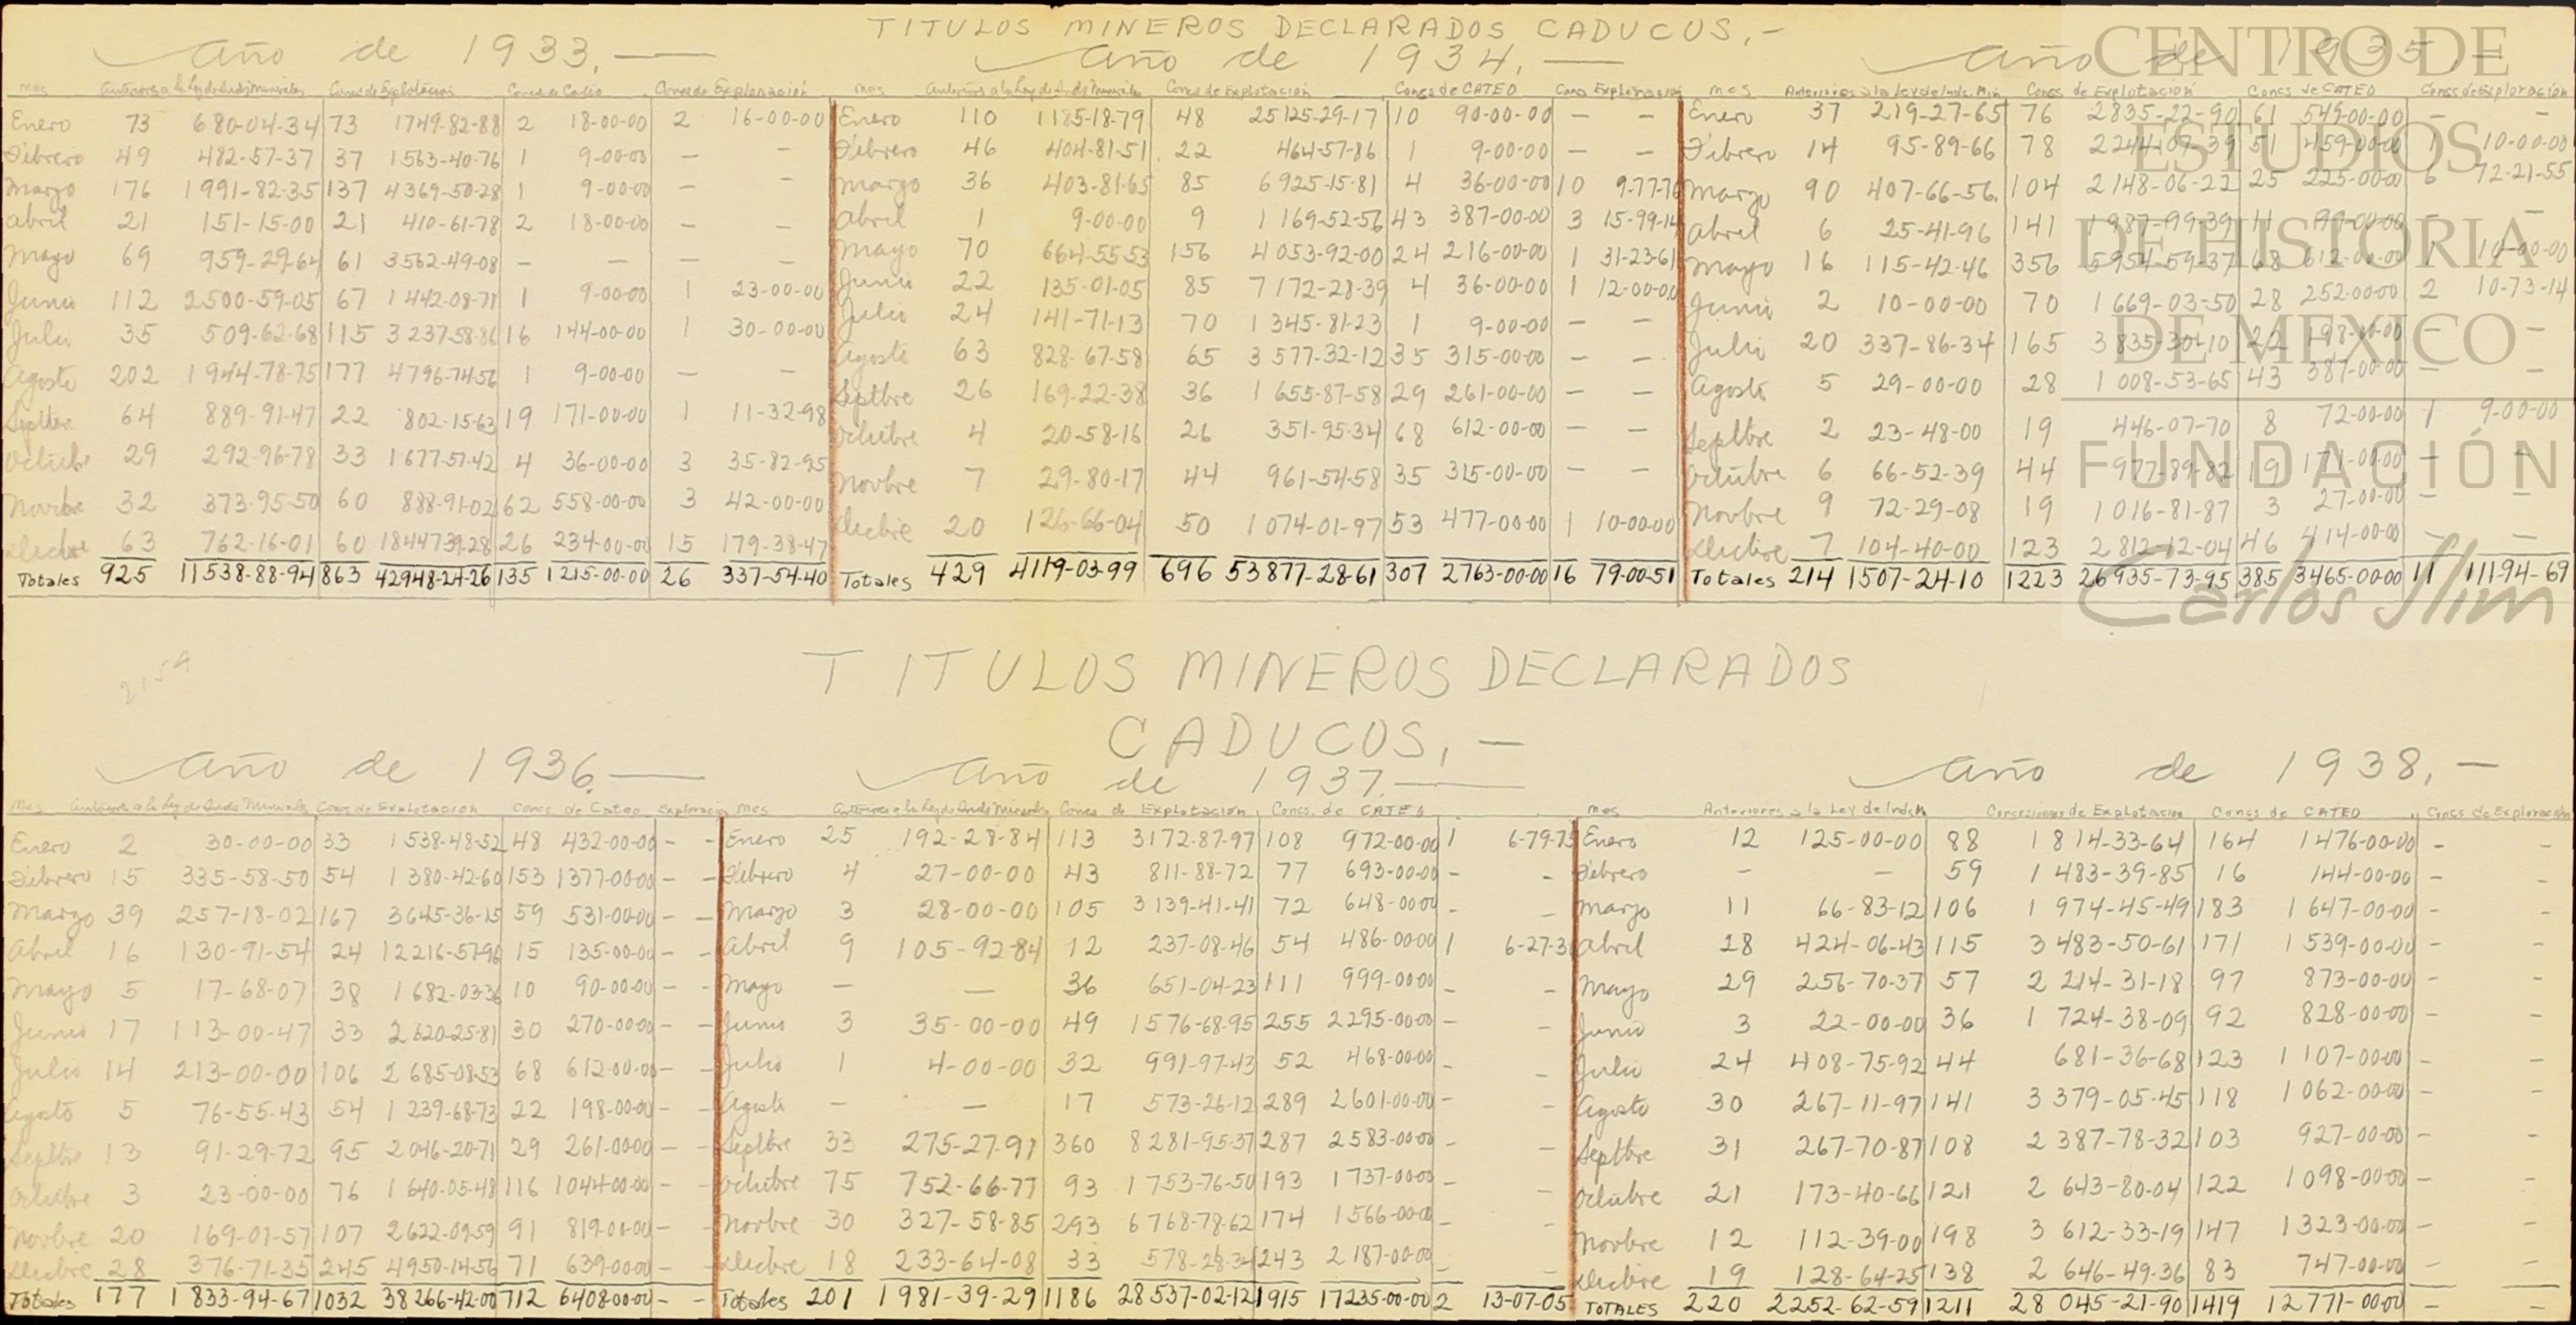 TITULOS MINEROS DECLARADOS CADUCOS.-
Año de 1933.— Año de 1934.— Año de 1935.—
CENTRO DE
ESTUDIOS
DE HISTORIA
DE MEXICO
FUNDACIÓN
Carlos Slim
Mes Anteriores a la Ley de Inds Minerales Concs de Explotación Concs de Cateo Concs de Exploración
Enero 73 680-04-34 73 1749-82-88 2 18-00-00 2 16-00-00
Febrero 49 482-57-37 37 1563-40-76 1 9-00-00 — —
Marzo 176 1991-82-35 137 4369-50-28 1 9-00-00 — —
Abril 21 151-15-00 21 410-61-78 2 18-00-00 — —
Mayo 69 959-29-64 61 3562-49-08 — — — —
Junio 112 2500-59-05 67 1442-08-71 1 9-00-00 1 23-00-00
Julio 35 509-62-68 115 3237-58-86 16 144-00-00 1 30-00-00
Agosto 202 1944-78-75 177 4796-74-56 1 9-00-00 — —
Septbre 64 889-91-47 22 802-15-63 19 171-00-00 1 11-32-98
Octubre 29 292-96-78 33 1677-57-42 4 36-00-00 3 35-82-95
Novbre 32 373-95-50 60 888-91-02 62 558-00-00 3 42-00-00
Dicbre 63 762-16-01 60 18447-39-28 26 234-00-00 15 179-38-47
Totales 925 11538-88-94 863 42948-24-26 135 1215-00-00 26 337-54-40
Mes Anteriores a la Ley de Inds Minerales Concs de Explotación Concs de CATEO Concs Exploración
Enero 110 1185-18-79 48 25125-29-17 10 90-00-00 — —
Febrero 46 404-81-51 22 464-57-86 1 9-00-00 — —
Marzo 36 403-81-65 85 6925-15-81 4 36-00-00 10 9-77-76
Abril 1 9-00-00 9 1169-52-56 43 387-00-00 3 15-99-14
Mayo 70 664-55-53 156 4053-92-00 24 216-00-00 1 31-23-61
Junio 22 135-01-05 85 7172-28-39 4 36-00-00 1 12-00-00
Julio 24 141-71-13 70 1345-81-23 1 9-00-00 — —
Agosto 63 828-67-58 65 3577-32-12 35 315-00-00 — —
Septbre 26 169-22-38 36 1655-87-58 29 261-00-00 — —
Octubre 4 20-58-16 26 351-95-34 68 612-00-00 — —
Novbre 7 29-80-17 44 961-54-58 35 315-00-00 — —
Dicbre 20 126-66-04 50 1074-01-97 53 477-00-00 1 10-00-00
Totales 429 4119-03-99 696 53877-28-61 307 2763-00-00 16 79-00-51
Mes Anteriores a la Ley de Inds. Min Concs de Explotación Concs de CATEO Concs de Exploración
Enero 37 219-27-65 76 2835-22-90 61 549-00-00 — —
Febrero 14 95-89-66 78 2244-07-39 51 459-00-00 1 10-00-00
Marzo 90 407-66-56 104 2148-06-22 25 225-00-00 6 72-21-55
Abril 6 25-41-96 141 1987-99-39 11 99-00-00 — —
Mayo 16 115-42-46 356 5954-59-37 68 612-00-00 1 10-00-00
Junio 2 10-00-00 70 1669-03-50 28 252-00-00 2 10-73-14
Julio 20 337-86-34 165 3835-30-10 22 198-00-00 — —
Agosto 5 29-00-00 28 1008-53-65 43 387-00-00 — —
Septbre 2 23-48-00 19 446-07-70 8 72-00-00 1 9-00-00
Octubre 6 66-52-39 44 977-89-82 19 171-00-00 — —
Novbre 9 72-29-08 19 1016-81-87 3 27-00-00 — —
Dicbre 7 104-40-00 123 2812-12-04 46 414-00-00 — —
Totales 214 1507-24-10 1223 26935-73-95 385 3465-00-00 11 111-94-69
2154
TITULOS MINEROS DECLARADOS
CADUCOS.-
Año de 1936.— Año de 1937.— Año de 1938.—
Mes Anteriores a la Ley de Inds Minerales Concs de Explotación Concs de Cateo Exploración
Enero 2 30-00-00 33 1538-48-52 48 432-00-00 - -
Febrero 15 335-58-50 54 1380-42-60 153 1377-00-00 - -
Marzo 39 257-18-02 167 3645-36-15 59 531-00-00 - -
Abril 16 130-91-54 24 12216-57-96 15 135-00-00 - -
Mayo 5 17-68-07 38 1682-03-36 10 90-00-00 - -
Junio 17 113-00-47 33 2620-25-81 30 270-00-00 - -
Julio 14 213-00-00 106 2685-08-53 68 612-00-00 - -
Agosto 5 76-55-43 54 1239-68-73 22 198-00-00 - -
Septbre 13 91-29-72 95 2046-20-71 29 261-00-00 - -
Octubre 3 23-00-00 76 1640-05-48 116 1044-00-00 - -
Novbre 20 169-01-57 107 2622-09-59 91 819-00-00 - -
Dicbre 28 376-71-35 245 4950-14-56 71 639-00-00 - -
Totales 177 1833-94-67 1032 38266-42-00 712 6408-00-00 - -
Mes Anteriores a la Ley de Inds Minerales Concs de Explotación Concs. de CATEO
Enero 25 192-28-84 113 3172-87-97 108 972-00-00 1 6-79-75
Febrero 4 27-00-00 43 811-88-72 77 693-00-00 - -
Marzo 3 28-00-00 105 3139-41-41 72 648-00-00 - -
Abril 9 105-92-84 12 237-08-46 54 486-00-00 1 6-27-30
Mayo — — 36 651-04-23 111 999-00-00 - -
Junio 3 35-00-00 49 1576-68-95 255 2295-00-00 - -
Julio 1 4-00-00 32 991-97-43 52 468-00-00 - -
Agosto — — 17 573-26-12 289 2601-00-00 - -
Septbre 33 275-27-91 360 8281-95-37 287 2583-00-00 - -
Octubre 75 752-66-77 93 1753-76-50 193 1737-00-00 - -
Novbre 30 327-58-85 293 6768-78-62 174 1566-00-00 - -
Dicbre 18 233-64-08 33 578-28-34 243 2187-00-00 - -
Totales 201 1981-39-29 1186 28537-02-12 1915 17235-00-00 2 13-07-05
Mes Anteriores a la Ley de Inds M Concesiones de Explotación Concs de CATEO Concs de Exploración
Enero 12 125-00-00 88 1814-33-64 164 1476-00-00 - -
Febrero — — 59 1483-39-85 16 144-00-00 - -
Marzo 11 66-83-12 106 1974-45-49 183 1647-00-00 - -
Abril 28 424-06-43 115 3483-50-61 171 1539-00-00 - -
Mayo 29 256-70-37 57 2214-31-18 97 873-00-00 - -
Junio 3 22-00-00 36 1724-38-09 92 828-00-00 - -
Julio 24 408-75-92 44 681-36-68 123 1107-00-00 - -
Agosto 30 267-11-97 141 3379-05-45 118 1062-00-00 - -
Septbre 31 267-70-87 108 2387-78-32 103 927-00-00 - -
Octubre 21 173-40-66 121 2643-80-04 122 1098-00-00 - -
Novbre 12 112-39-00 198 3612-33-19 147 1323-00-00 - -
Dicbre 19 128-64-25 138 2646-49-36 83 747-00-00 - -
TOTALES 220 2252-62-59 1211 28045-21-90 1419 12771-00-00 - -